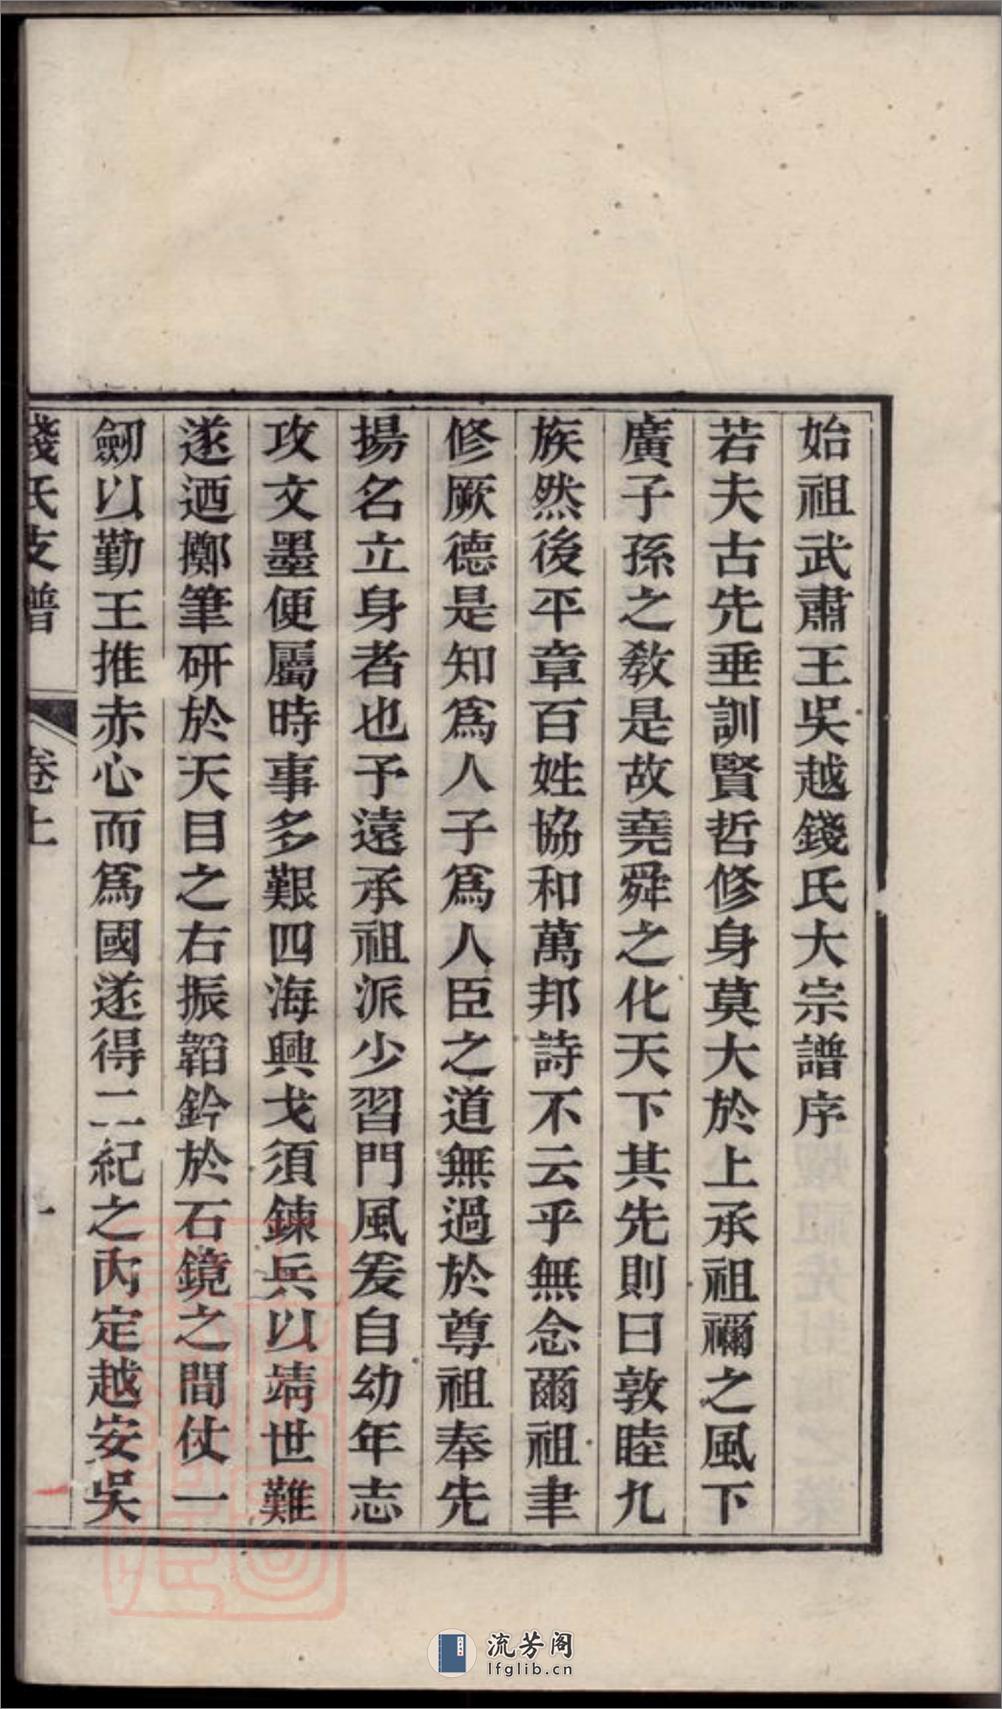 始祖武肅王吳越錢氏大宗譜序
若夫古先垂訓賢哲修身莫大於上承祖禰之風下
廣子孫之敎是故堯舜之化天下其先則曰敦睦九
族然後平章百姓協和萬邦詩不云乎無念爾祖聿
修厥德是知爲人子爲人臣之道無過於尊祖奉先
揚名立身者也予遠承祖派少習門風爰自幼年志
攻文墨便屬時事多艱四海興戈須鍊兵以靖世難
遂迺擲筆硏於天目之右振韜鈐於石鏡之間仗一
劒以勤王推赤心而爲國遂得二紀之內定越安吳
錢氏支譜 卷上 一
流芳阁
lfglib.cn